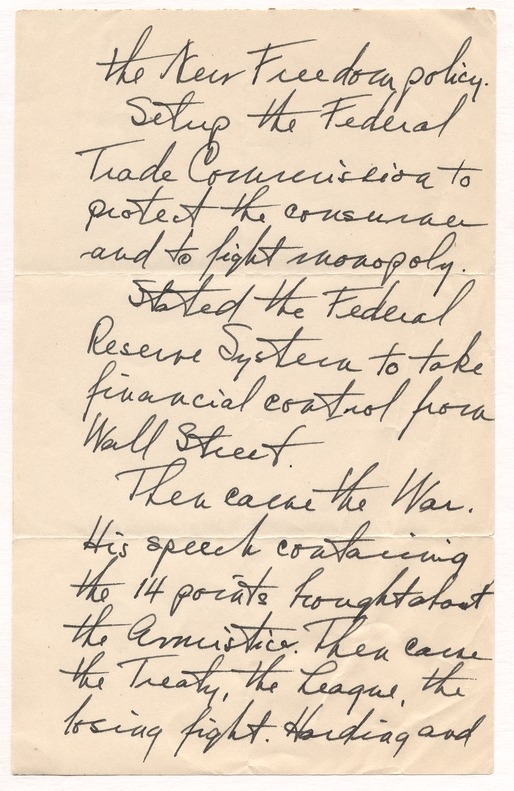 the New Freedom policy.
Setup the Federal
Trade Commission to
protect the consumer
and to fight monopoly.
Stated the Federal
Reserve System to take
financial control from
Wall Street.
Then came the War.
His speech containing
the 14 points brought about
the Armistice. Then came
the Treaty, the League, the
losing fight. Harding and